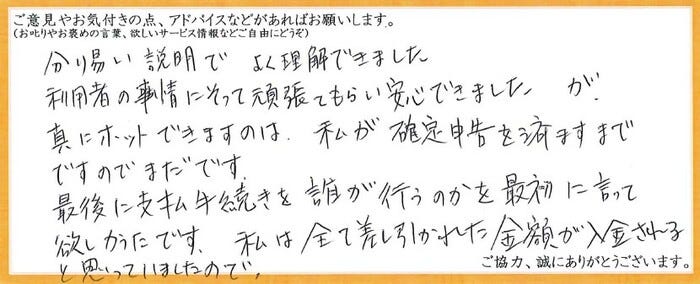 ご意見やお気付きの点、アドバイスなどがあればお願いします。
(お叱りやお褒めの言葉、欲しいサービス情報などご自由にどうぞ)
分り易い説明で よく理解できました
利用者の事情にそって頑張てもらい安心できました が.
真にホットできますのは. 私が確定申告を済ますまで
ですのでまだです.
最後に支払手続きを誰が行うのかを最初に言って
欲しかったです. 私は全て差し引かれた金額が入金される
と思っていましたので,
ご協力、誠にありがとうございます。